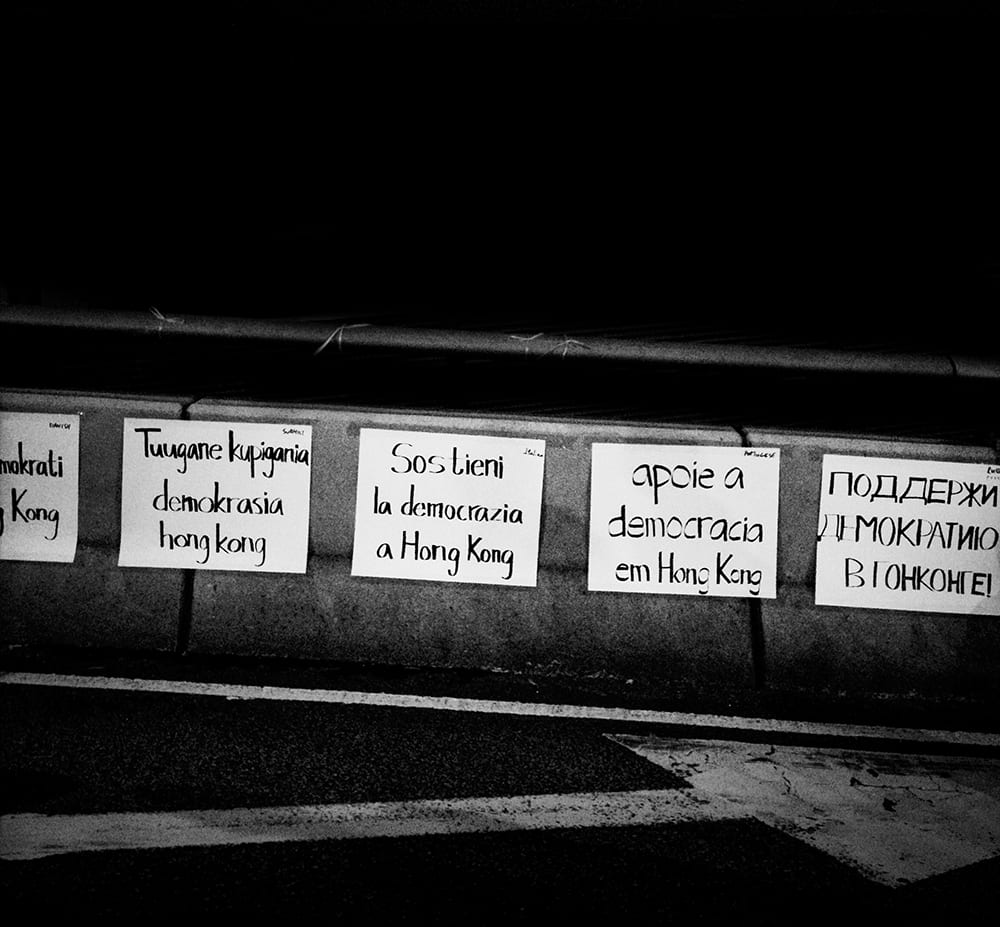 DANISH
mokrati
Kong
SWAHILI
Tuugane kupigania
demokrasia
hong kong
Italian
Sostieni
la democrazia
a Hong Kong
PORTUGUESE
apoie a
democracia
em Hong Kong
ПОДДЕРЖИ
ДЕМОКРАТИЮ
В ГОНКОНГЕ!